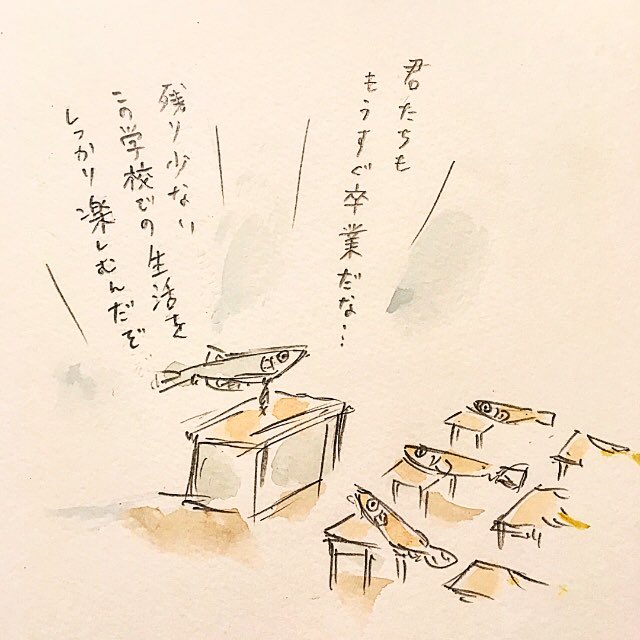 君たちも
もうすぐ卒業だな…
残り少ない
この学校での生活を
しっかり楽しむんだぞ